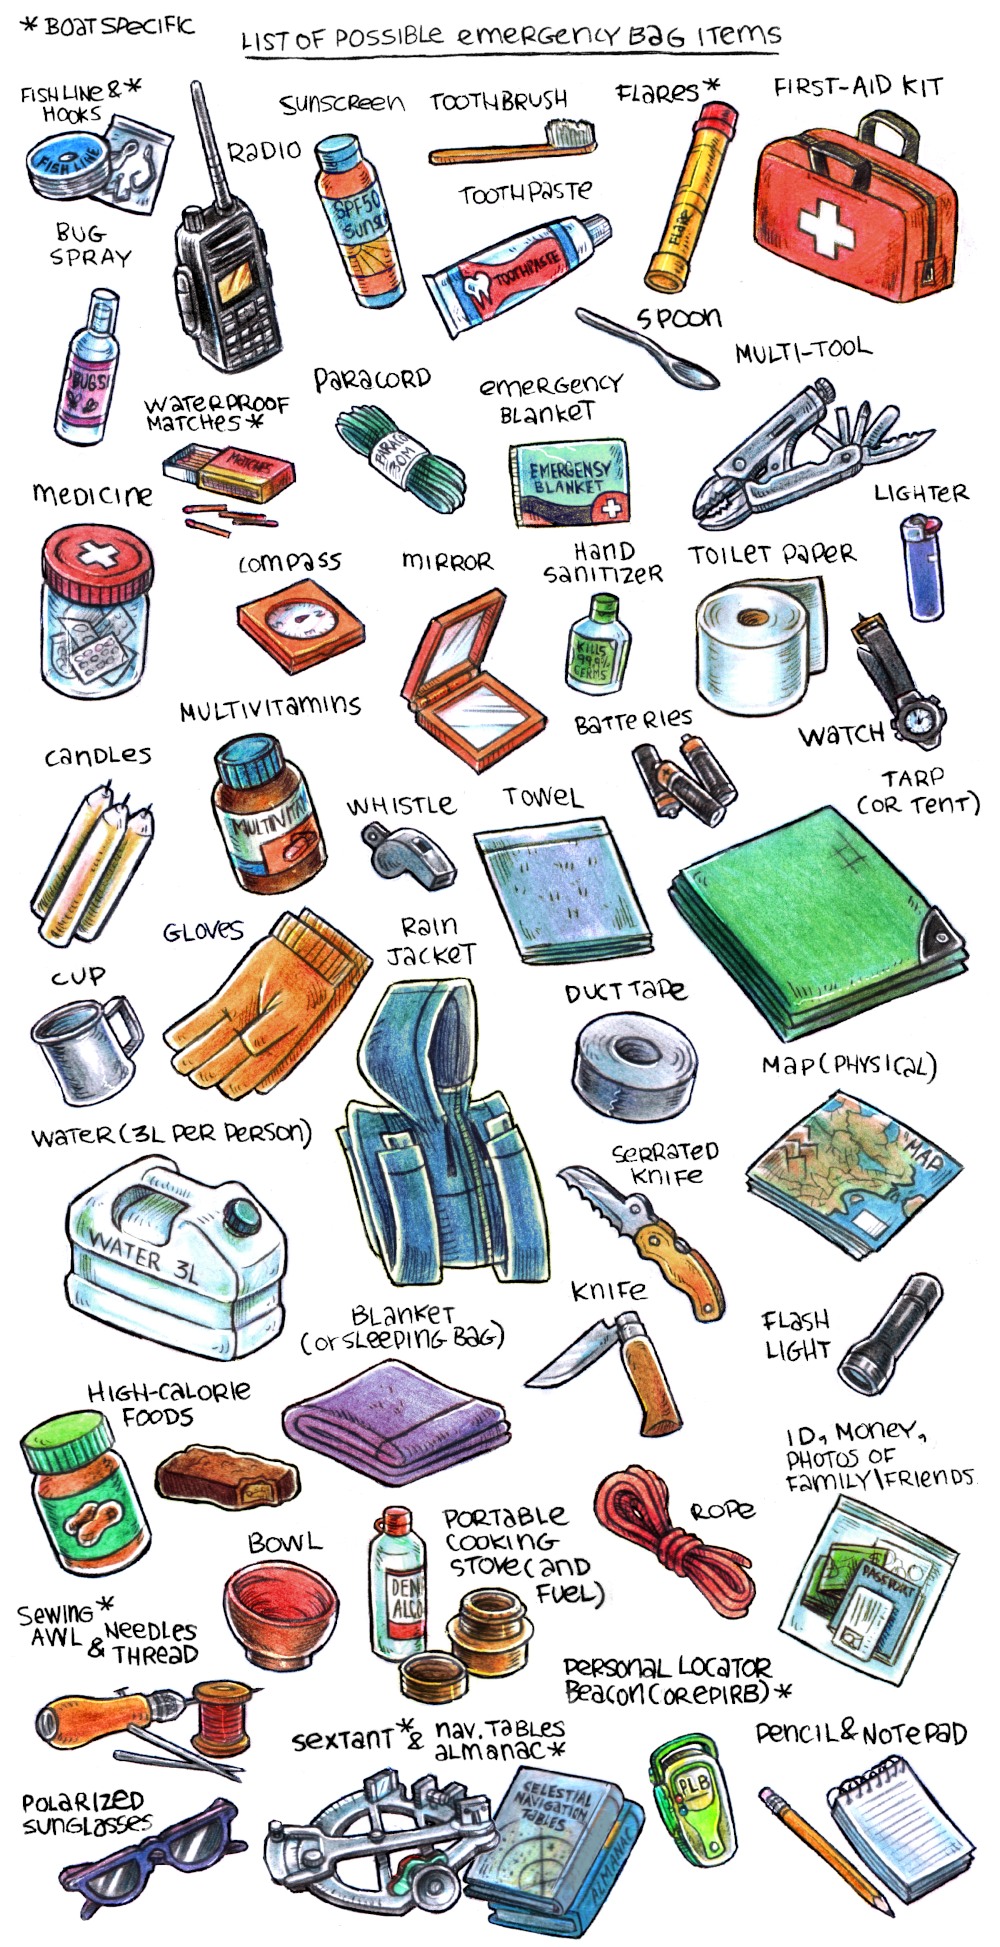 * BOAT SPECIFIC
LIST OF POSSIBLE EMERGENCY BAG ITEMS
FISH LINE & *
HOOKS
FISH LINE
RADIO
SUNSCREEN
SPF50
SUNS
TOOTHBRUSH
TOOTHPASTE
TOOTHPASTE
FLARES *
FLARE
FIRST-AID KIT
BUG
SPRAY
BUGS!
SPOON
MULTI-TOOL
WATERPROOF
MATCHES *
MATCHES
PARACORD
PARACO
30M
EMERGENCY
BLANKET
EMERGENSY
BLANKET
LIGHTER
MEDICINE
COMPASS
MIRROR
HAND
SANITIZER
KILLS
99.9%
GERMS
TOILET PAPER
WATCH
MULTIVITAMINS
MULTIVITA
BATTERIES
CANDLES
WHISTLE
TOWEL
TARP
(OR TENT)
GLOVES
RAIN
JACKET
CUP
DUCT TAPE
MAP (PHYSICAL)
MAP
WATER (3L PER PERSON)
WATER 3L
SERRATED
KNIFE
KNIFE
FLASH
LIGHT
BLANKET
(OR SLEEPING BAG)
HIGH-CALORIE
FOODS
ID, MONEY,
PHOTOS OF
FAMILY\FRIENDS
PASSPORT
BOWL
PORTABLE
COOKING
STOVE (AND
FUEL)
DEN
ALCO
ROPE
SEWING *
AWL & NEEDLES
THREAD
PERSONAL LOCATOR
BEACON (OR EPIRB) *
PLB
SEXTANT * & NAV. TABLES
ALMANAC *
CELESTIAL
NAVIGATION
TABLES
ALMANAC
PENCIL & NOTEPAD
POLARIZED
SUNGLASSES